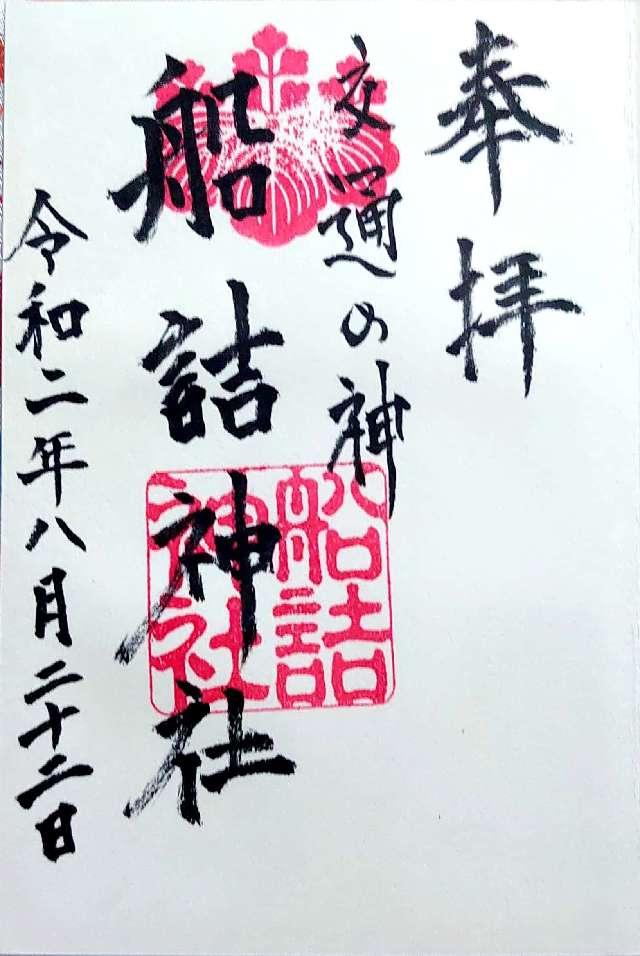 奉拝
交通の神
船詰神社
船詰神社
令和二年八月二十二日